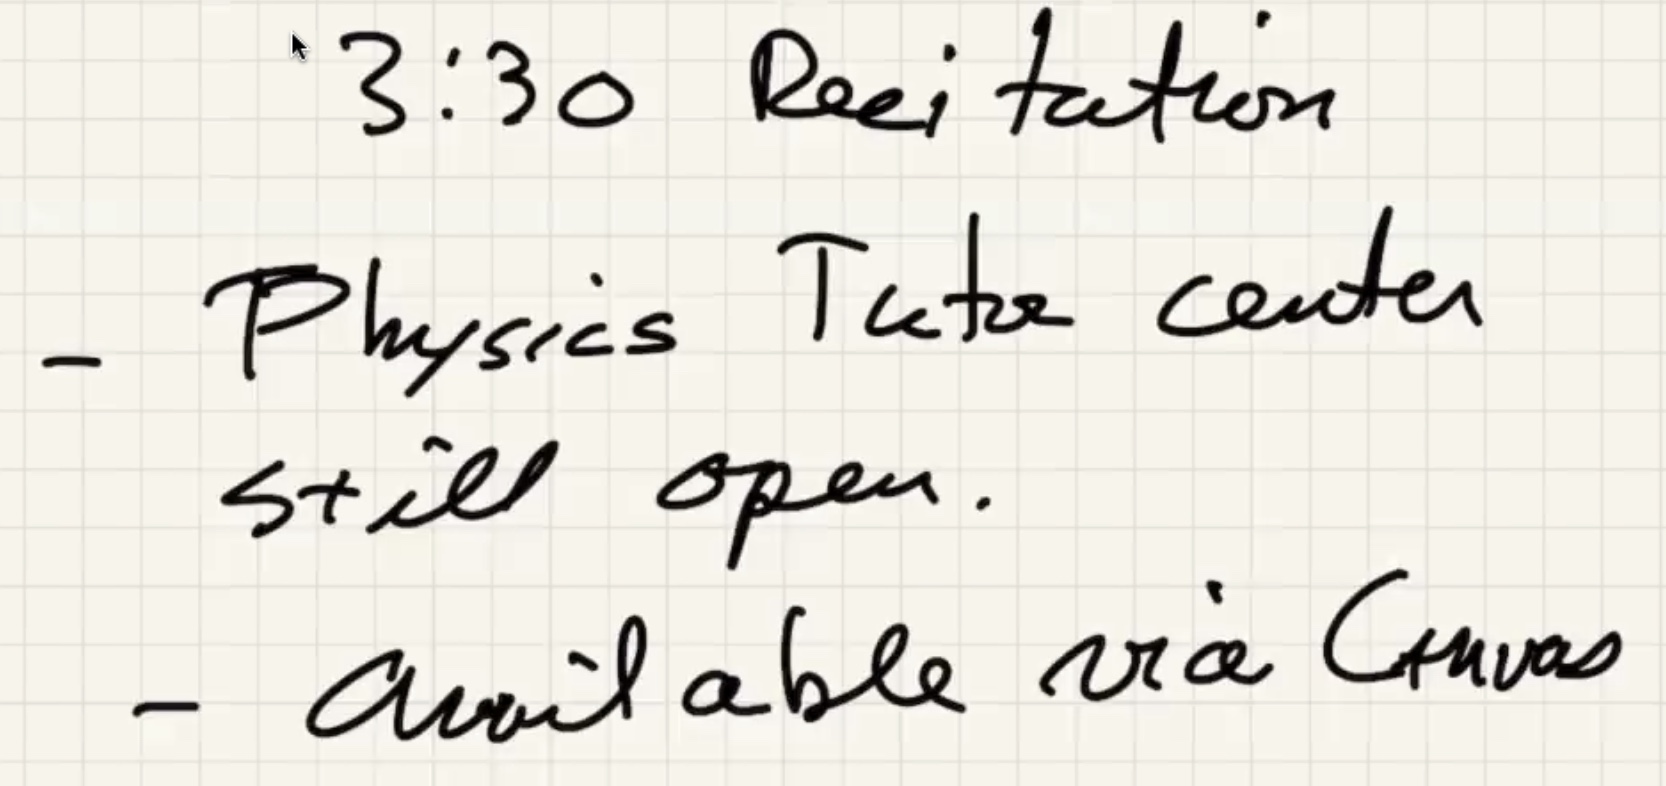 3:30 Recitation
- Physics Tutor center
still open.
- available via Canvas